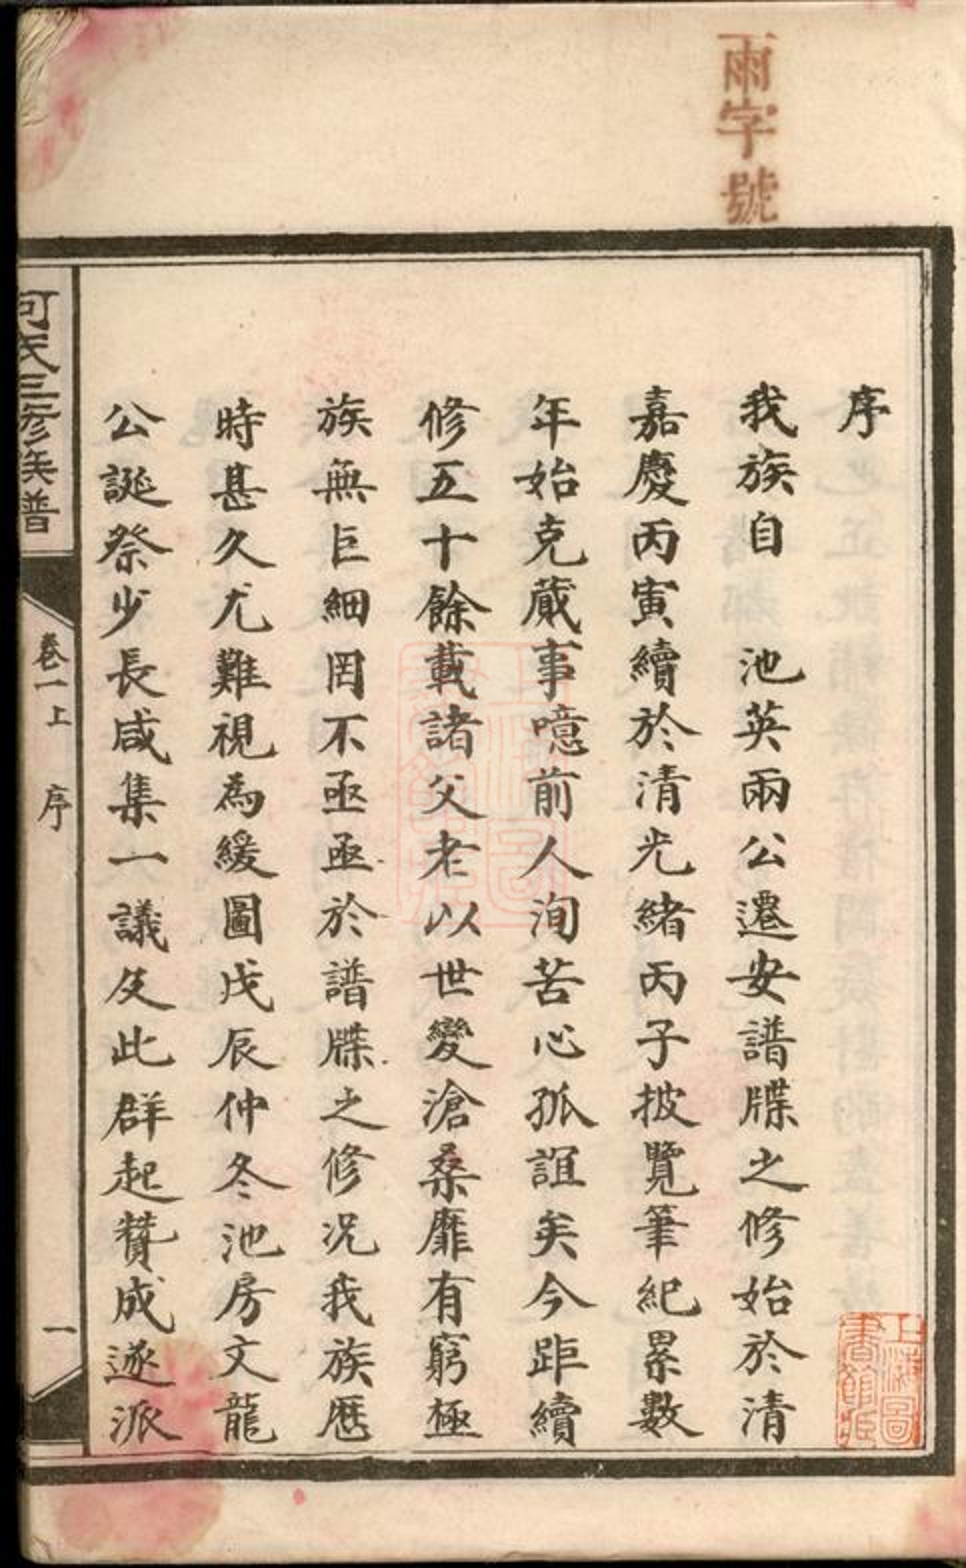 雨字號
序
我族自　池英兩公遷安譜牒之修始於清
嘉慶丙寅續於清光緒丙子披覽筆紀累數
年始克蕆事噫前人洵苦心孤詣矣今距續
修五十餘載諸父老以世變滄桑靡有窮極
族無巨細罔不亟亟於譜牒之修況我族歷
時甚久尤難視為緩圖戊辰仲冬池房文龍
公誕祭少長咸集一議及此群起贊成遂派
河氏三修族譜
卷一上　序
一
上海圖書館藏